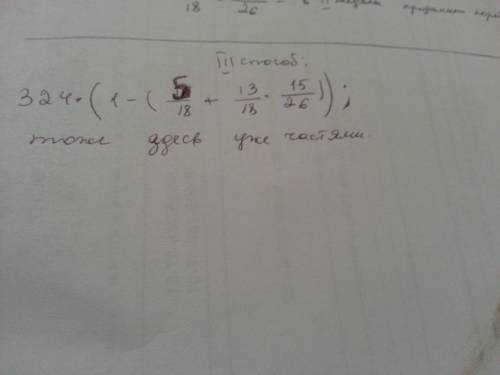 18 26 - в II
III способ:
324 · (1 - (5/18 + 13/18 · 15/26));
тоже здесь уже частями